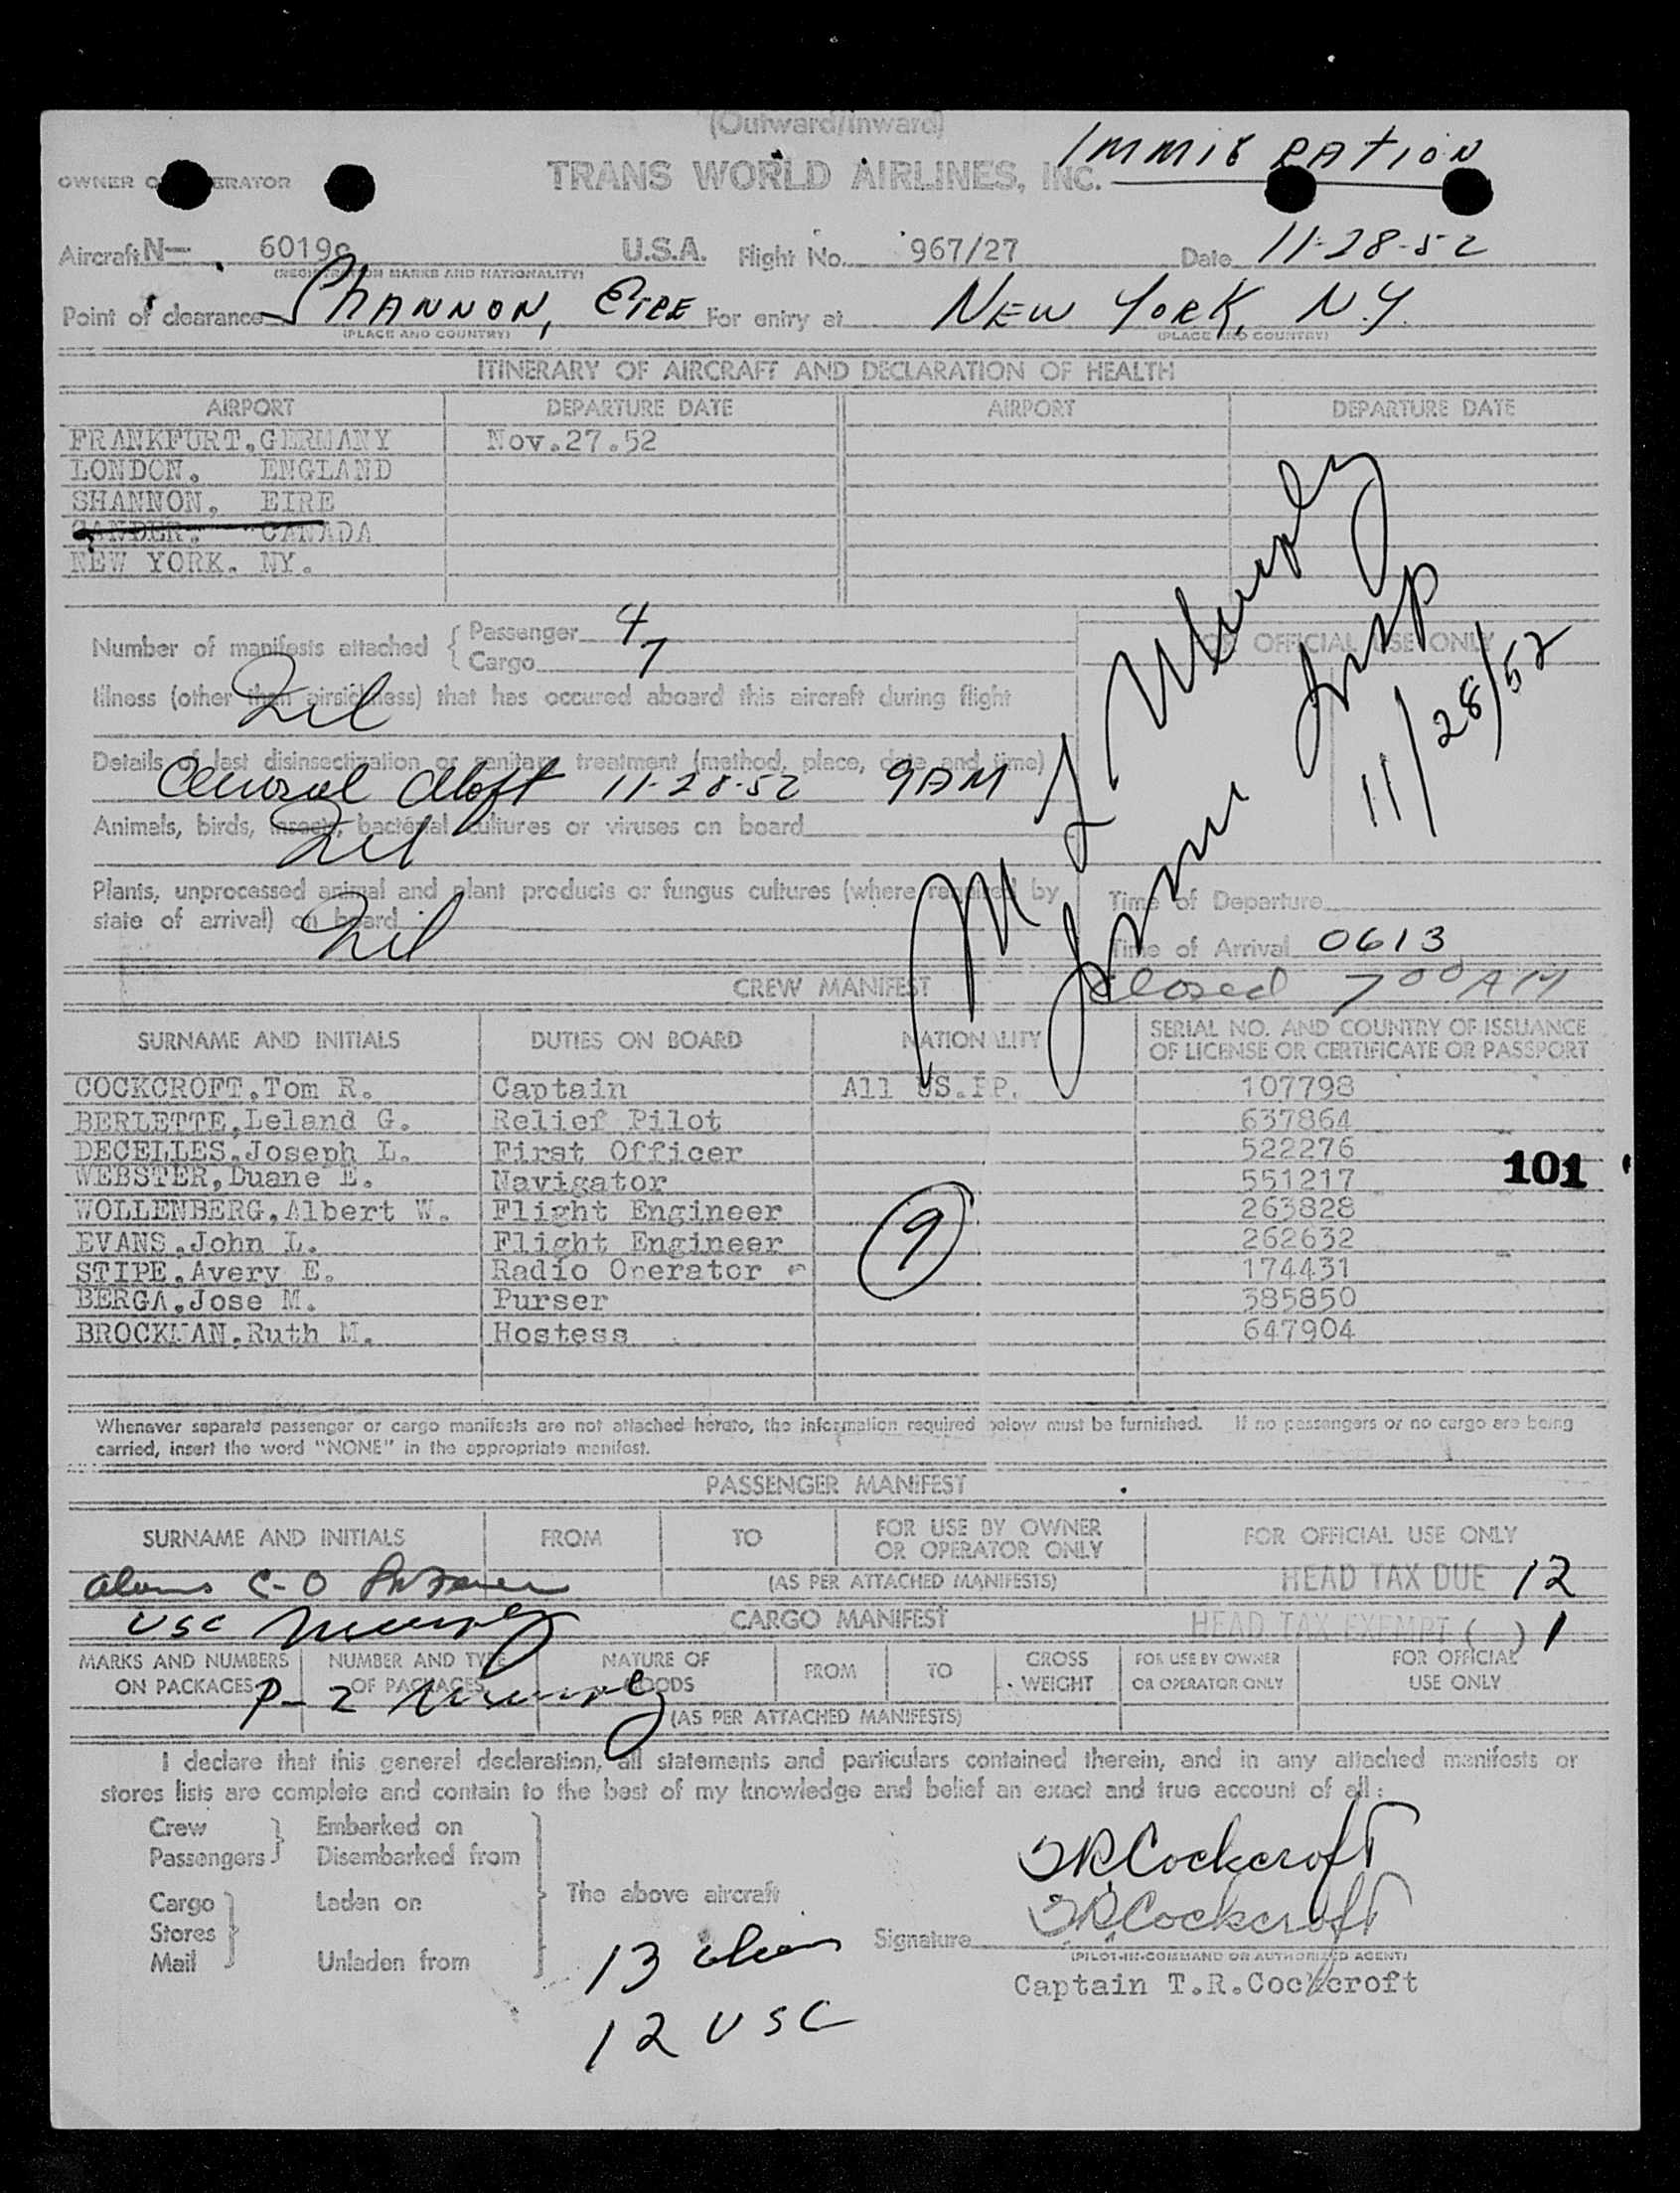 (Outward/Inward)
IMMIGRATION
OWNER O ERATOR TRANS WORLD AIRLINES, INC.
Aircraft N— 6019c U.S.A. Flight No. 967/27 Date 11-28-52
(REGISTRATION MARKS AND NATIONALITY)
Point of clearance SHANNON, EIRE For entry at NEW YORK, N.Y.
(PLACE AND COUNTRY) (PLACE AND COUNTRY)
ITINERARY OF AIRCRAFT AND DECLARATION OF HEALTH
AIRPORT DEPARTURE DATE AIRPORT DEPARTURE DATE
FRANKFURT,GERMANY Nov.27.52
LONDON, ENGLAND
SHANNON, EIRE
GANDER. CANADA
NEW YORK. NY.
Number of manifests attached { Passenger 4
Cargo 7
FOR OFFICIAL USE ONLY
Illness (other than airsickness) that has occured aboard this aircraft during flight
Nil
Details of last disinsectization or sanitary treatment (method, place, date and time)
Aerosol Aloft 11-28-52 9AM
Animals, birds, insects, bacterial cultures or viruses on board
Nil
Plants, unprocessed animal and plant products or fungus cultures (where required by
state of arrival) on board
Nil
M J Murphy
Imm Insp
11/28/52
Time of Departure
Time of Arrival 0613
closed 7 00 AM
CREW MANIFEST
SURNAME AND INITIALS DUTIES ON BOARD NATIONALITY SERIAL NO. AND COUNTRY OF ISSUANCE
OF LICENSE OR CERTIFICATE OR PASSPORT
COCKCROFT,Tom R. Captain All US.PP. 107798
BERLETTE,Leland G. Relief Pilot 637864
DECELLES,Joseph L. First Officer 522276
WEBSTER,Duane E. Navigator 551217
101
WOLLENBERG,Albert W. Flight Engineer 263828
9
EVANS,John L. Flight Engineer 262632
STIPE,Avery E. Radio Operator 174431
BERGA,Jose M. Purser 385850
BROCKMAN,Ruth M. Hostess 647904
Whenever separate passenger or cargo manifests are not attached hereto, the information required below must be furnished. If no passengers or no cargo are being
carried, insert the word "NONE" in the appropriate manifest.
PASSENGER MANIFEST
SURNAME AND INITIALS FROM TO FOR USE BY OWNER
OR OPERATOR ONLY FOR OFFICIAL USE ONLY
(AS PER ATTACHED MANIFESTS) HEAD TAX DUE 12
aliens C-O
USC Murphy CARGO MANIFEST HEAD TAX EXEMPT ( ) 1
MARKS AND NUMBERS
ON PACKAGES NUMBER AND TYPE
OF PACKAGES NATURE OF
GOODS FROM TO GROSS
WEIGHT FOR USE BY OWNER
OR OPERATOR ONLY FOR OFFICIAL
USE ONLY
P-2 Murphy
(AS PER ATTACHED MANIFESTS)
I declare that this general declaration, all statements and particulars contained therein, and in any attached manifests or
stores lists are complete and contain to the best of my knowledge and belief an exact and true account of all:
Crew Embarked on
Passengers Disembarked from
Cargo Laden on The above aircraft
Stores
Mail Unladen from
TRCockcroft
TRCockcroft
Signature
(PILOT-IN-COMMAND OR AUTHORIZED AGENT)
Captain T.R.Cockcroft
13 aliens
12 USC